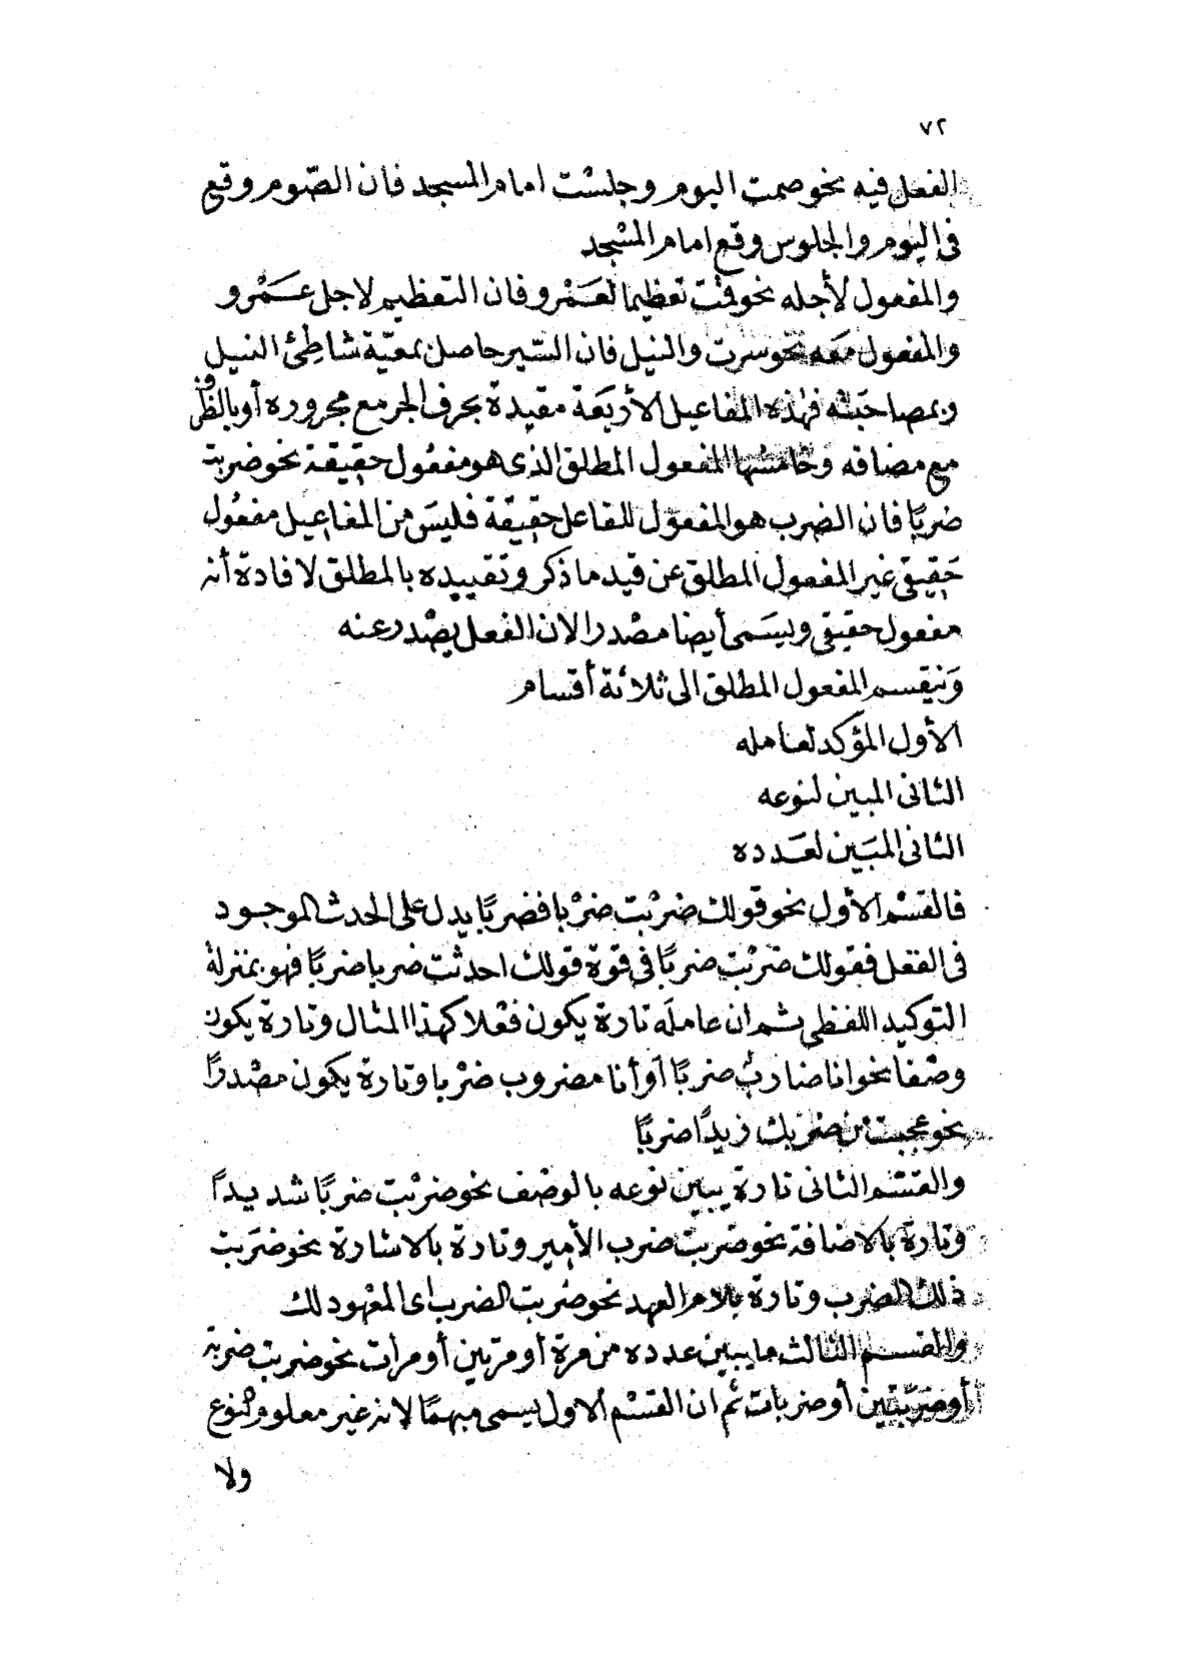 ٧٢
الفعل فيه نحو صمت اليوم وجلسْت امام المسجد فان الصّوم وقع
فى اليوم والجلوس وقع امام المسْجد
والمفعول لأجله نحو قمْت تعظيما لعَمْرو فان التعظيم لاجل عَمْرو
والمفعول معَه نحو سرت والنيل فان السّير حاصل بمعيّة شاطئ النيل
وبمصاحبَته فهٰذه المفاعيل الأربَعة مقيدة بحرف الجر مع مجروره أو بالظرف
مع مضافه وخامسُها المفعول المطلق الذى هو مفعُول حقيقة نحو ضربت
ضربًا فان الضرب هو المفعول للفاعل حقيقة فليسَ من المفاعيل مفعُول
حَقيقى غير المفعول المطلق عن قيد ما ذكر وتقييده بالمطلق لافادة أنه
مفعول حقيقى ويسَمى أيضا مصْدرا لان الفعل يصْدر عنه
وَينقسم المفعول المطلق الى ثلاثة أقسام
الأول المؤكد لعامله
الثانى المبين لنوعه
الثانى المبَين لعَدده
فالقسْم الأول نحو قولك ضربْت ضرْبا فضربًا يدل على الحدث الموجود
فى الفعْل فقولك ضربْت ضربًا فى قوة قولك احدثت ضربا ضربًا فهو بمنزلة
التوكيد اللفظى ثم ان عاملَه تارة يكون فعْلا كهذا المثال وتارة يكون
وصْفا نحو انا ضاربٌ ضربًا أو أنا مضروب ضرْبا وتارة يكون مصْدرًا
نحو عجبت من ضربك زيدًا ضربًا
والقسْم الثانى تارة يبين نوعه بالوصْف نحو ضربْت ضربًا شديدًا
وتارة بالاضافة نحو ضربت ضرب الأمير وتارة بالاشارة نحو ضرَبت
ذلك الضرب وتارة بلام العهد نحو ضربت الضرب أى المعْهود لك
والقسم الثالث ما يبين عدده من مرة أو مرّتين أو مرات نحو ضربت ضربة
أو ضربَتين أو ضربات ثم ان القسْم الاول يسمى مبهمًا لانه غير معلوم النوع
ولا